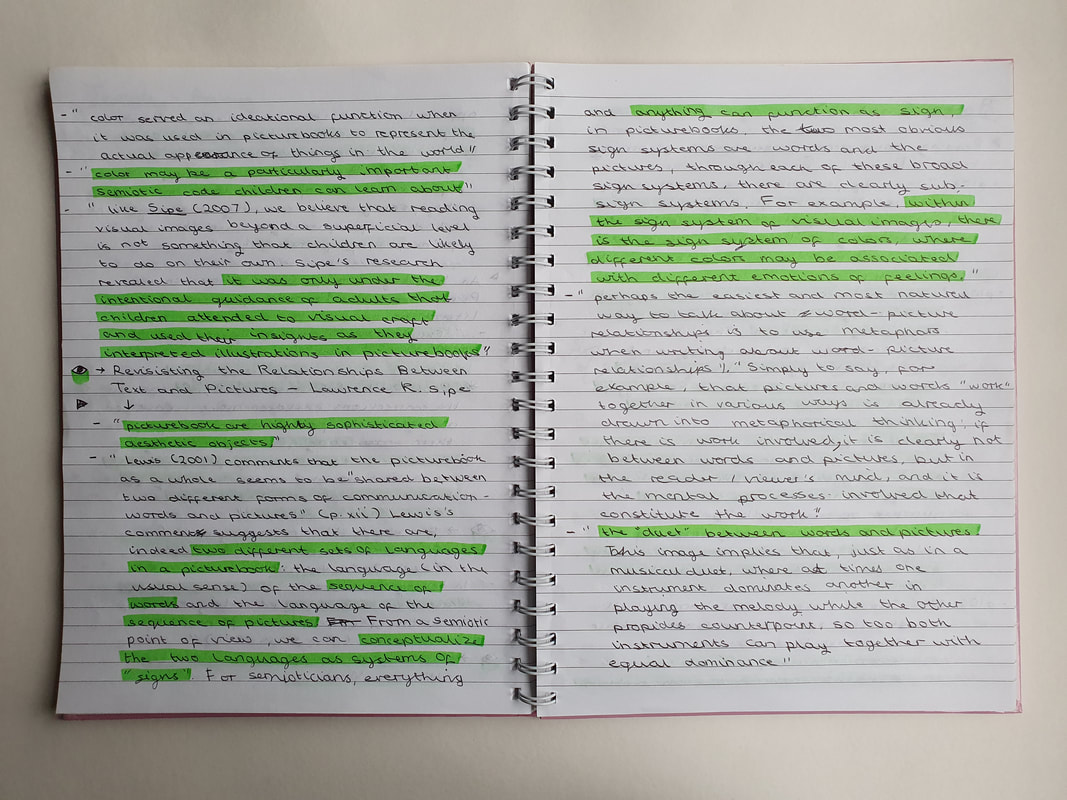 - " color served an ideational function when
it was used in picturebooks to represent the
actual appearance of things in the world"
- " color may be a particularly important
semiotic code children can learn about"
- " like Sipe (2007), we believe that reading
visual images beyond a superficial level
is not something that children are likely
to do on their own. Sipe's research
revealed that it was only under the
intentional guidance of adults that
children attended to visual craft
and used their insights as they
interpreted illustrations in picturebooks"
→ Revisisting the Relationships Between
Text and Pictures - Lawrence R. Sipe
↓
- "picturebook are highly sophisticated
aesthetic objects"
- " Lewis (2001) comments that the picturebook
as a whole seems to be "shared between
two different forms of communication -
words and pictures" (p.xii) Lewis's
comment suggests that there are,
indeed two different sets of languages
in a picturebook: the language (in the
usual sense) of the sequence of
words and the language of the
sequence of pictures. From a semiotic
point of view, we can conceptualize
the two languages as systems of
"signs". For semioticians, everything
and anything can function as sign,
in picturebooks, the two most obvious
sign systems are words and the
pictures, through each of these broad
sign systems, there are clearly sub-
sign systems. For example, within
the sign system of visual images, there
is the sign system of colors, where
different colors may be associated
with different emotions of feelings."
- " perhaps the easiest and most natural
way to talk about word-picture
relationships is to use metaphors
when writing about word-picture
relationships". "Simply to say, for
example, that pictures and words "work"
together in various ways is already
drawn into metaphorical thinking: if
there is work involved, it is clearly not
between words and pictures, but in
the reader / viewer's mind, and it is
the mental processes involved that
constitute the work."
- " the "duet" between words and pictures
This image implies that, just as in a
musical duet, where at times one
instrument dominates another in
playing the melody while the other
provides counterpoint, so too both
instruments can play together with
equal dominance"